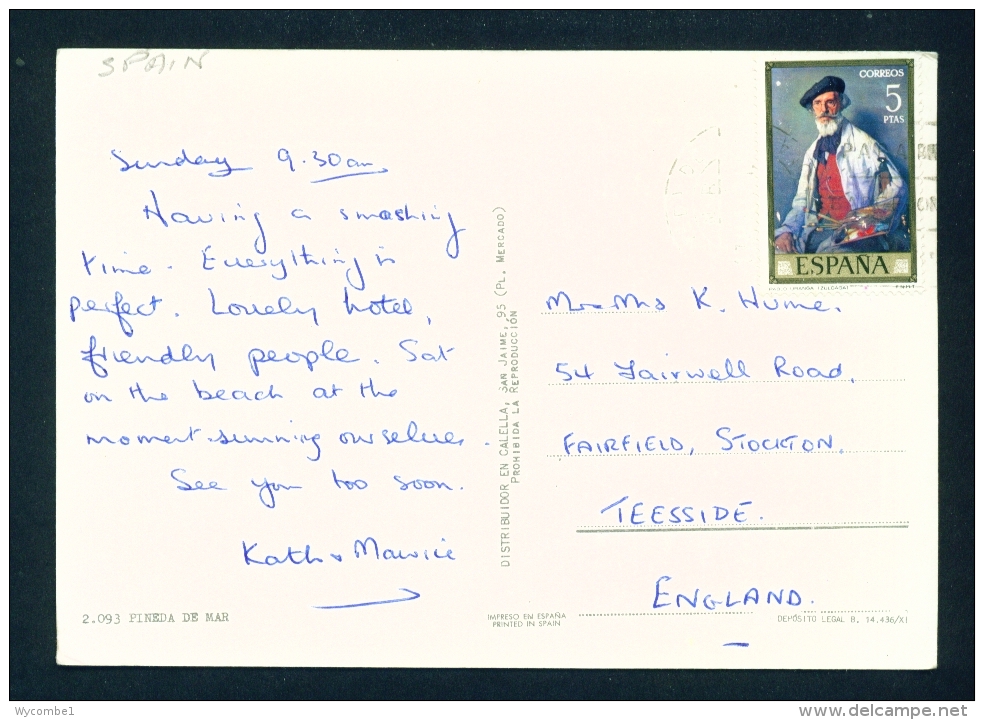 SPAIN
Sunday 9.30am
Having a smashing
time. Everything is
perfect. Lovely hotel,
friendly people. Sat
on the beach at the
moment sunning ourselves.
See you too soon.
Kath & Maurice
2.093 PINEDA DE MAR
DISTRIBUIDOR EN CALELLA, SAN JAIME, 95 (PL. MERCADO)
PROHIBIDA LA REPRODUCCIÓN
IMPRESO EN ESPAÑA
PRINTED IN SPAIN
CORREOS
5
PTAS
ESPAÑA
Mr & Mrs K. Hume.
54 Fairwell Road,
FAIRFIELD, STOCKTON,
TEESSIDE.
ENGLAND.
DEPÓSITO LEGAL B. 14.436/XI
Wycombe1
www.delcampe.net